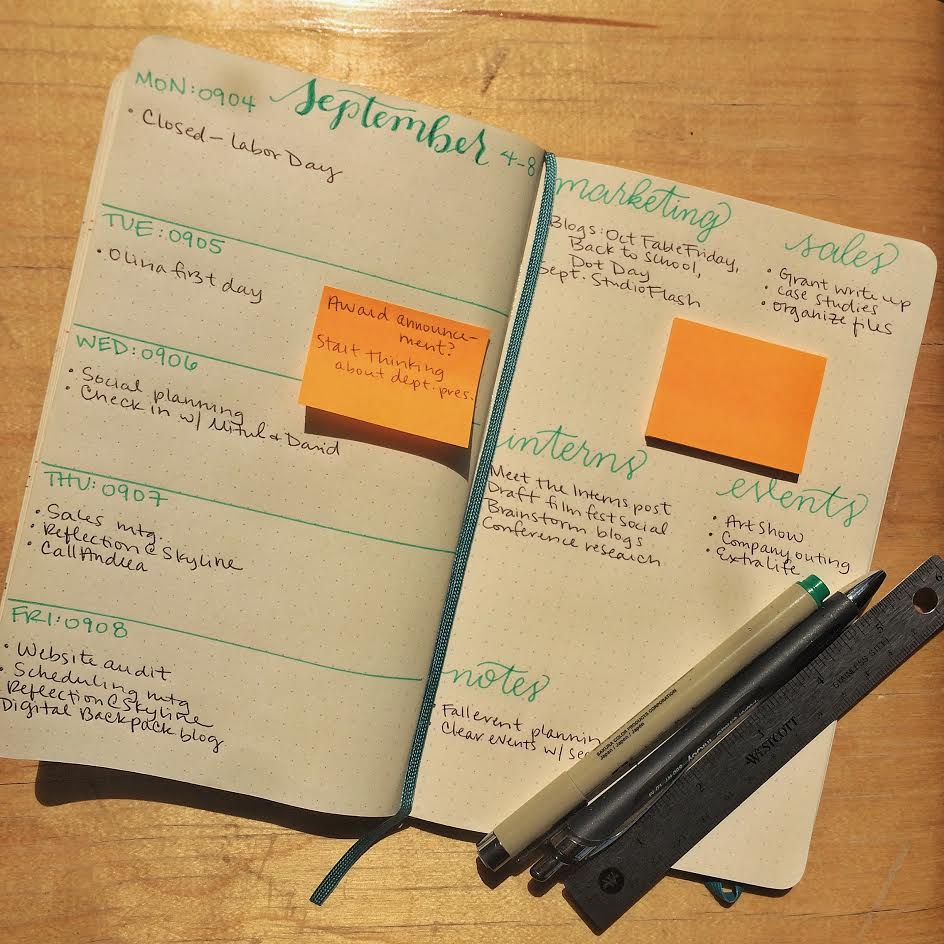 September 4-8
MON: 0904
• Closed - Labor Day
TUE: 0905
• Olina first day
WED: 0906
• Social planning
• Check in w/ Mitul & David
THU: 0907
• Sales mtg
• Reflection @ Skyline
• Call Andrea
FRI: 0908
• Website audit
• Scheduling mtg
• Reflection @ Skyline
Digital Backpack blog
Award announce-
ment?
Start thinking
about dept. pres.
marketing
Blogs: Oct Fable Friday,
Back to School,
Dot Day
Sept. StudioFlash
sales
• Grant write up
• case studies
• organize files
interns
Meet the Interns post
Draft film fest social
Brainstorm blogs
Conference research
events
• Art Show
• Company outing
• Extra Life
notes
• Fall event planning
• Clear events w/
SAKURA COLOR PRODUCTS CORPORATION
Japan / Japon / Japan
WESTCOTT
STAINLESS STEEL
1
2
3
4
5